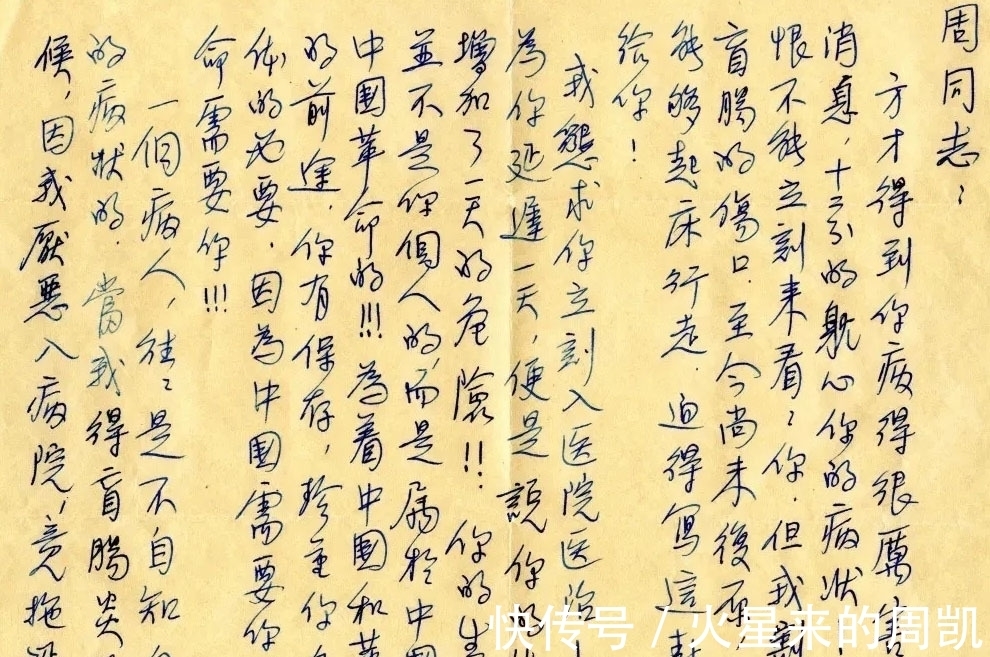 周同志：
方才得到你病得很厲害
消息，十二分的躭心你的病狀！
恨不能立刻来看看你．但我割
盲腸的傷口．至今尚未復原
能够起床行走．迫得写這封
给你！
我懇求你立刻入医院医治！
為你延遲一天，便是説你
增加了一天的危險!!．你的生
並不是你個人的，而是属於中国
中國革命的!!!為着中国和革
的前途．你有保存，珍重你
体的必要．因為中国需要你
命需要你!!!
一個病人，往々是不自知
的病狀的．當我得盲腸炎
候，因我厭惡入病院，竟拖延
快传号 / 火星来的周凯